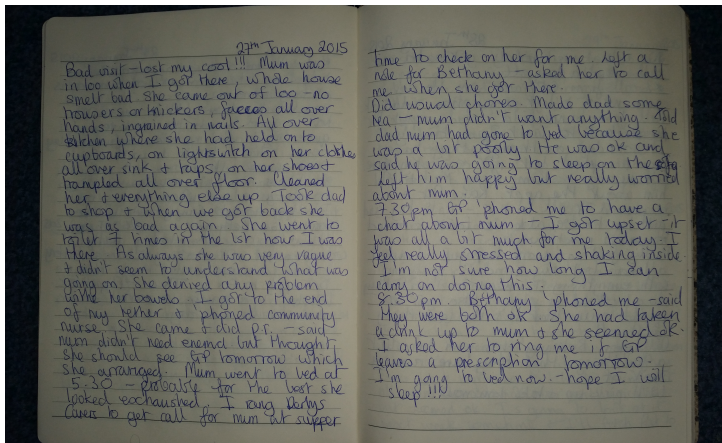 27th January 2015
Bad visit - lost my cool!!! Mum was
in loo when I got there, whole house
smelt bad. She came out of loo - no
trousers or knickers, faeces all over
hands, ingrained in nails. All over
kitchen where she had held on to
cupboards, on lightswitch on her clothes
all over sink & taps, on her shoes &
trampled all over floor. Cleaned
her & everything else up. Took dad
to shop & when we got back she
was as bad again. She went to
toilet 7 times in the 1st hour I was
there. As always she was very vague
& didn't seem to understand what was
going on. She denied any problem
with her bowels. I got to the end
of my tether & 'phoned community
nurse. She came & did p.r. - said
mum didn't need enema but thought
she should see GP tomorrow which
she arranged. Mum went to bed at
5.30 - probably for the best she
looked exhausted. I rang Derbys
Carers to get call for mum at supper
time to check on her for me. Left a
note for Bethany - asked her to call
me when she got there.
Did usual phones. Made dad some
tea - mum didn't want anything. Told
dad mum had gone to bed because she
was a bit poorly. He was ok and
said he was going to sleep on the sofa
Left him happy but really worried
about mum.
7.30pm GP 'phoned me to have a
chat about mum - I got upset - it
was all a bit much for me today. I
feel really stressed and shaking inside.
I'm not sure how long I can
carry on doing this.
8.30pm. Bethany 'phoned me - said
they were both ok. She had taken
a drink up to mum & she seemed ok.
I asked her to ring me if GP
leaves a prescription tomorrow.
I'm going to bed now - hope I will
sleep!!!